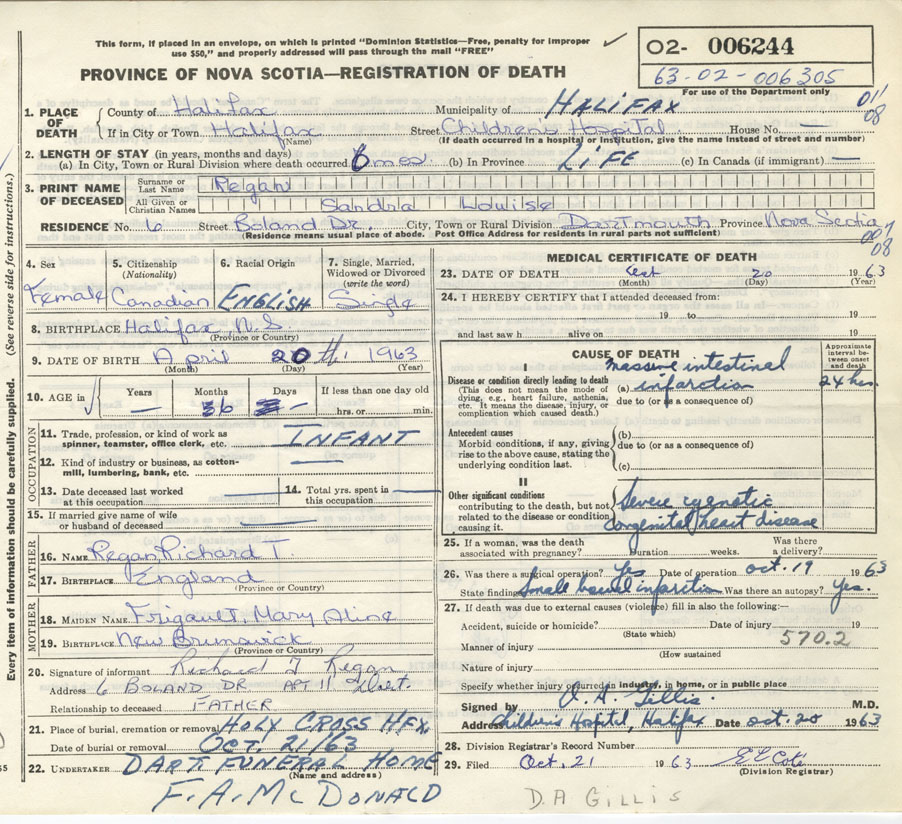 This form, if placed in an envelope, on which is printed "Dominion Statistics—Free, penalty for improper
use $50," and properly addressed will pass through the mail "FREE"
02- 006244
63-02-006305
For use of the Department only
PROVINCE OF NOVA SCOTIA—REGISTRATION OF DEATH
1. PLACE OF DEATH
County of Halifax Municipality of HALIFAX 011
08
If in City or Town Halifax Street Children's Hospital House No. —
(Name) (If death occurred in a hospital or institution, give the name instead of street and number)
2. LENGTH OF STAY (in years, months and days)
(a) In City, Town or Rural Division where death occurred 6 mos (b) In Province LIFE (c) In Canada (if immigrant) —
3. PRINT NAME OF DECEASED
Surname or Last Name Regan
All Given or Christian Names Sandra Louise
RESIDENCE No. 6 Street Boland Dr. City, Town or Rural Division Dartmouth Province Nova Scotia
(Residence means usual place of abode. Post Office Address for residents in rural parts not sufficient)
007
08
4. Sex Female
5. Citizenship (Nationality) Canadian
6. Racial Origin ENGLISH
7. Single, Married, Widowed or Divorced (write the word) Single
8. BIRTHPLACE Halifax, N.S.
(Province or Country)
9. DATE OF BIRTH April 20 th, 1963
(Month) (Day) (Year)
10. AGE in Years — Months 6 Days — If less than one day old
hrs. or min.
OCCUPATION
11. Trade, profession, or kind of work as spinner, teamster, office clerk, etc. INFANT
12. Kind of industry or business, as cotton-mill, lumbering, bank, etc. —
13. Date deceased last worked at this occupation —
14. Total yrs. spent in this occupation —
15. If married give name of wife or husband of deceased —
FATHER
16. NAME Regan, Richard T.
17. BIRTHPLACE England
(Province or Country)
MOTHER
18. MAIDEN NAME Frigault, Mary Aline
19. BIRTHPLACE New Brunswick
(Province or Country)
20. Signature of informant Richard T Regan
Address 6 BOLAND DR APT 11 Dart.
Relationship to deceased FATHER
21. Place of burial, cremation or removal HOLY CROSS HFX.
Date of burial or removal OCT. 21/63
22. UNDERTAKER DART FUNERAL HOME
(Name and address)
F. A. McDONALD
MEDICAL CERTIFICATE OF DEATH
23. DATE OF DEATH Oct 20 1963
(Month) (Day) (Year)
24. I HEREBY CERTIFY that I attended deceased from:
19 to 19
and last saw h alive on 19
CAUSE OF DEATH
Approximate interval between onset and death
I
Disease or condition directly leading to death
(This does not mean the mode of dying, e.g., heart failure, asthenia, etc. It means the disease, injury, or complication which caused death.)
(a) massive intestinal infarction 24 hrs.
due to (or as a consequence of)
Antecedent causes
Morbid conditions, if any, giving rise to the above cause, stating the underlying condition last.
(b)
due to (or as a consequence of)
(c)
II
Other significant conditions
contributing to the death, but not related to the disease or condition causing it.
Severe cyanotic
congenital heart disease
25. If a woman, was the death associated with pregnancy? Duration weeks. Was there a delivery?
26. Was there a surgical operation? Yes Date of operation Oct. 19 1963
State findings Small bowel infarction Was there an autopsy? Yes.
27. If death was due to external causes (violence) fill in also the following:—
Accident, suicide or homicide? Date of injury 19
(State which)
Manner of injury 570.2
(How sustained
Nature of injury
Specify whether injury occurred in industry, in home, or in public place
Signed by D. A. Gillis M.D.
Address Children's Hospital, Halifax Date Oct. 20 1963
28. Division Registrar's Record Number
29. Filed Oct. 21 1963
(Division Registrar)
D.A GILLIS
Every item of information should be carefully supplied. (See reverse side for instructions.)